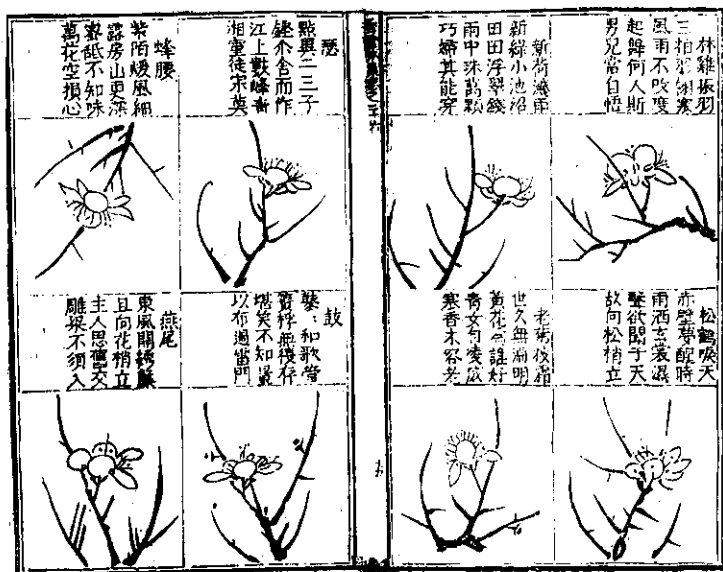 林雞振羽
三拍羽翎寒
風雨不改度
起舞何人斯
男兒當自悟
新荷濺雨
新綠小池沼
田田浮翠錢
雨中珠萬顆
巧婦其能穿
松鶴唳天
赤壁夢醒時
雨洒玄裳濕
聲欲聞于天
故向松梢立
老菊披霜
世久無淵明
黃花為誰好
青女句凌厲
寒香未容老
瑟
點與二三子
鏗尒舍而作
江上數峰青
湘靈徒索莫
蜂腰
紫陌煖風細
露房山更深
蜜甜不知味
萬花空損心
鼓
和歌管
無復存
堪笑不知量
以布過當門
燕尾
東風開繡簾
且向花梢立
主人思舊交
雕梁不須入